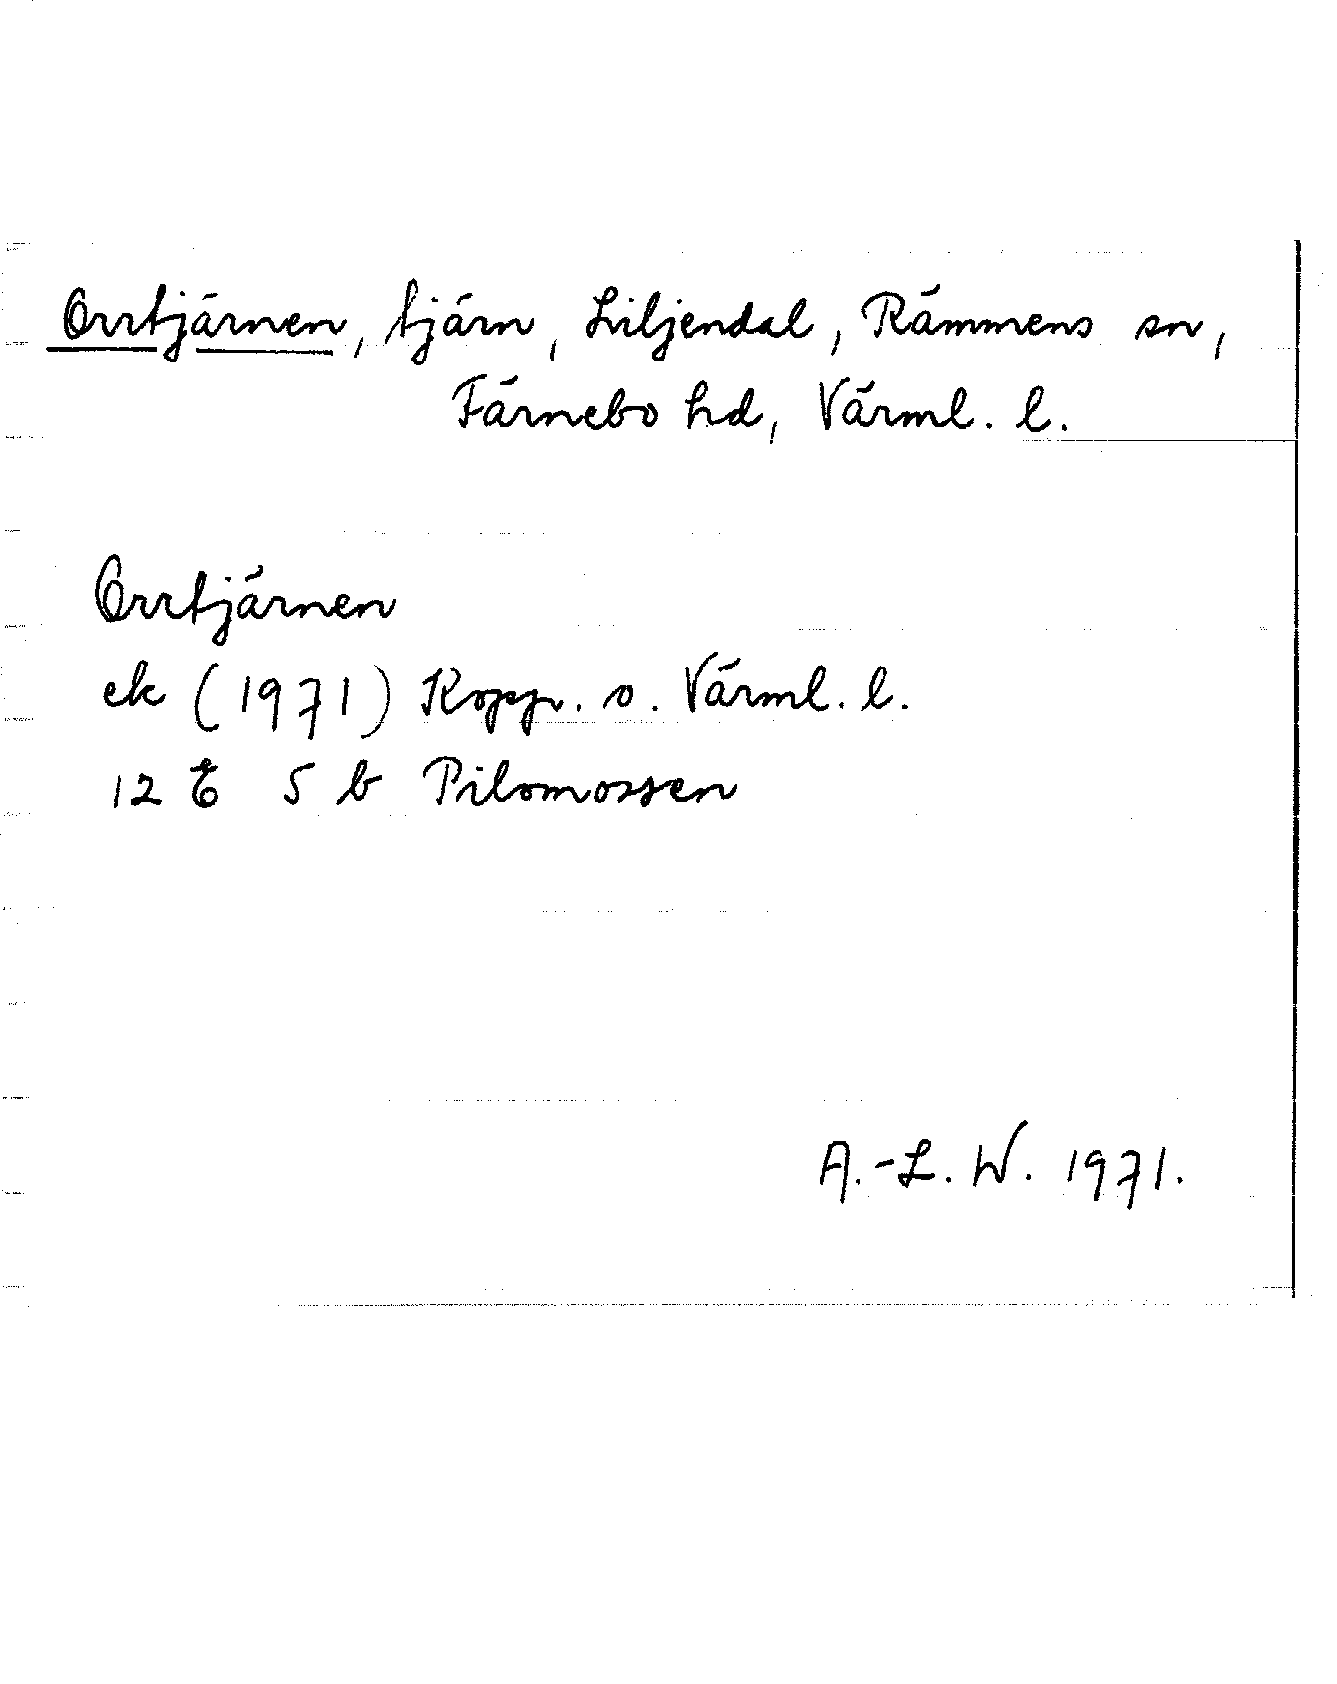 Orrtjärnen, tjärn, Liljendal, Rämmens sn,
Färnebo hd, Värml. l.
Orrtjärnen
ek (1971) Kopp. o. Värml. l.
12 E 5 b Pilomossen
A.-L. W. 1971.